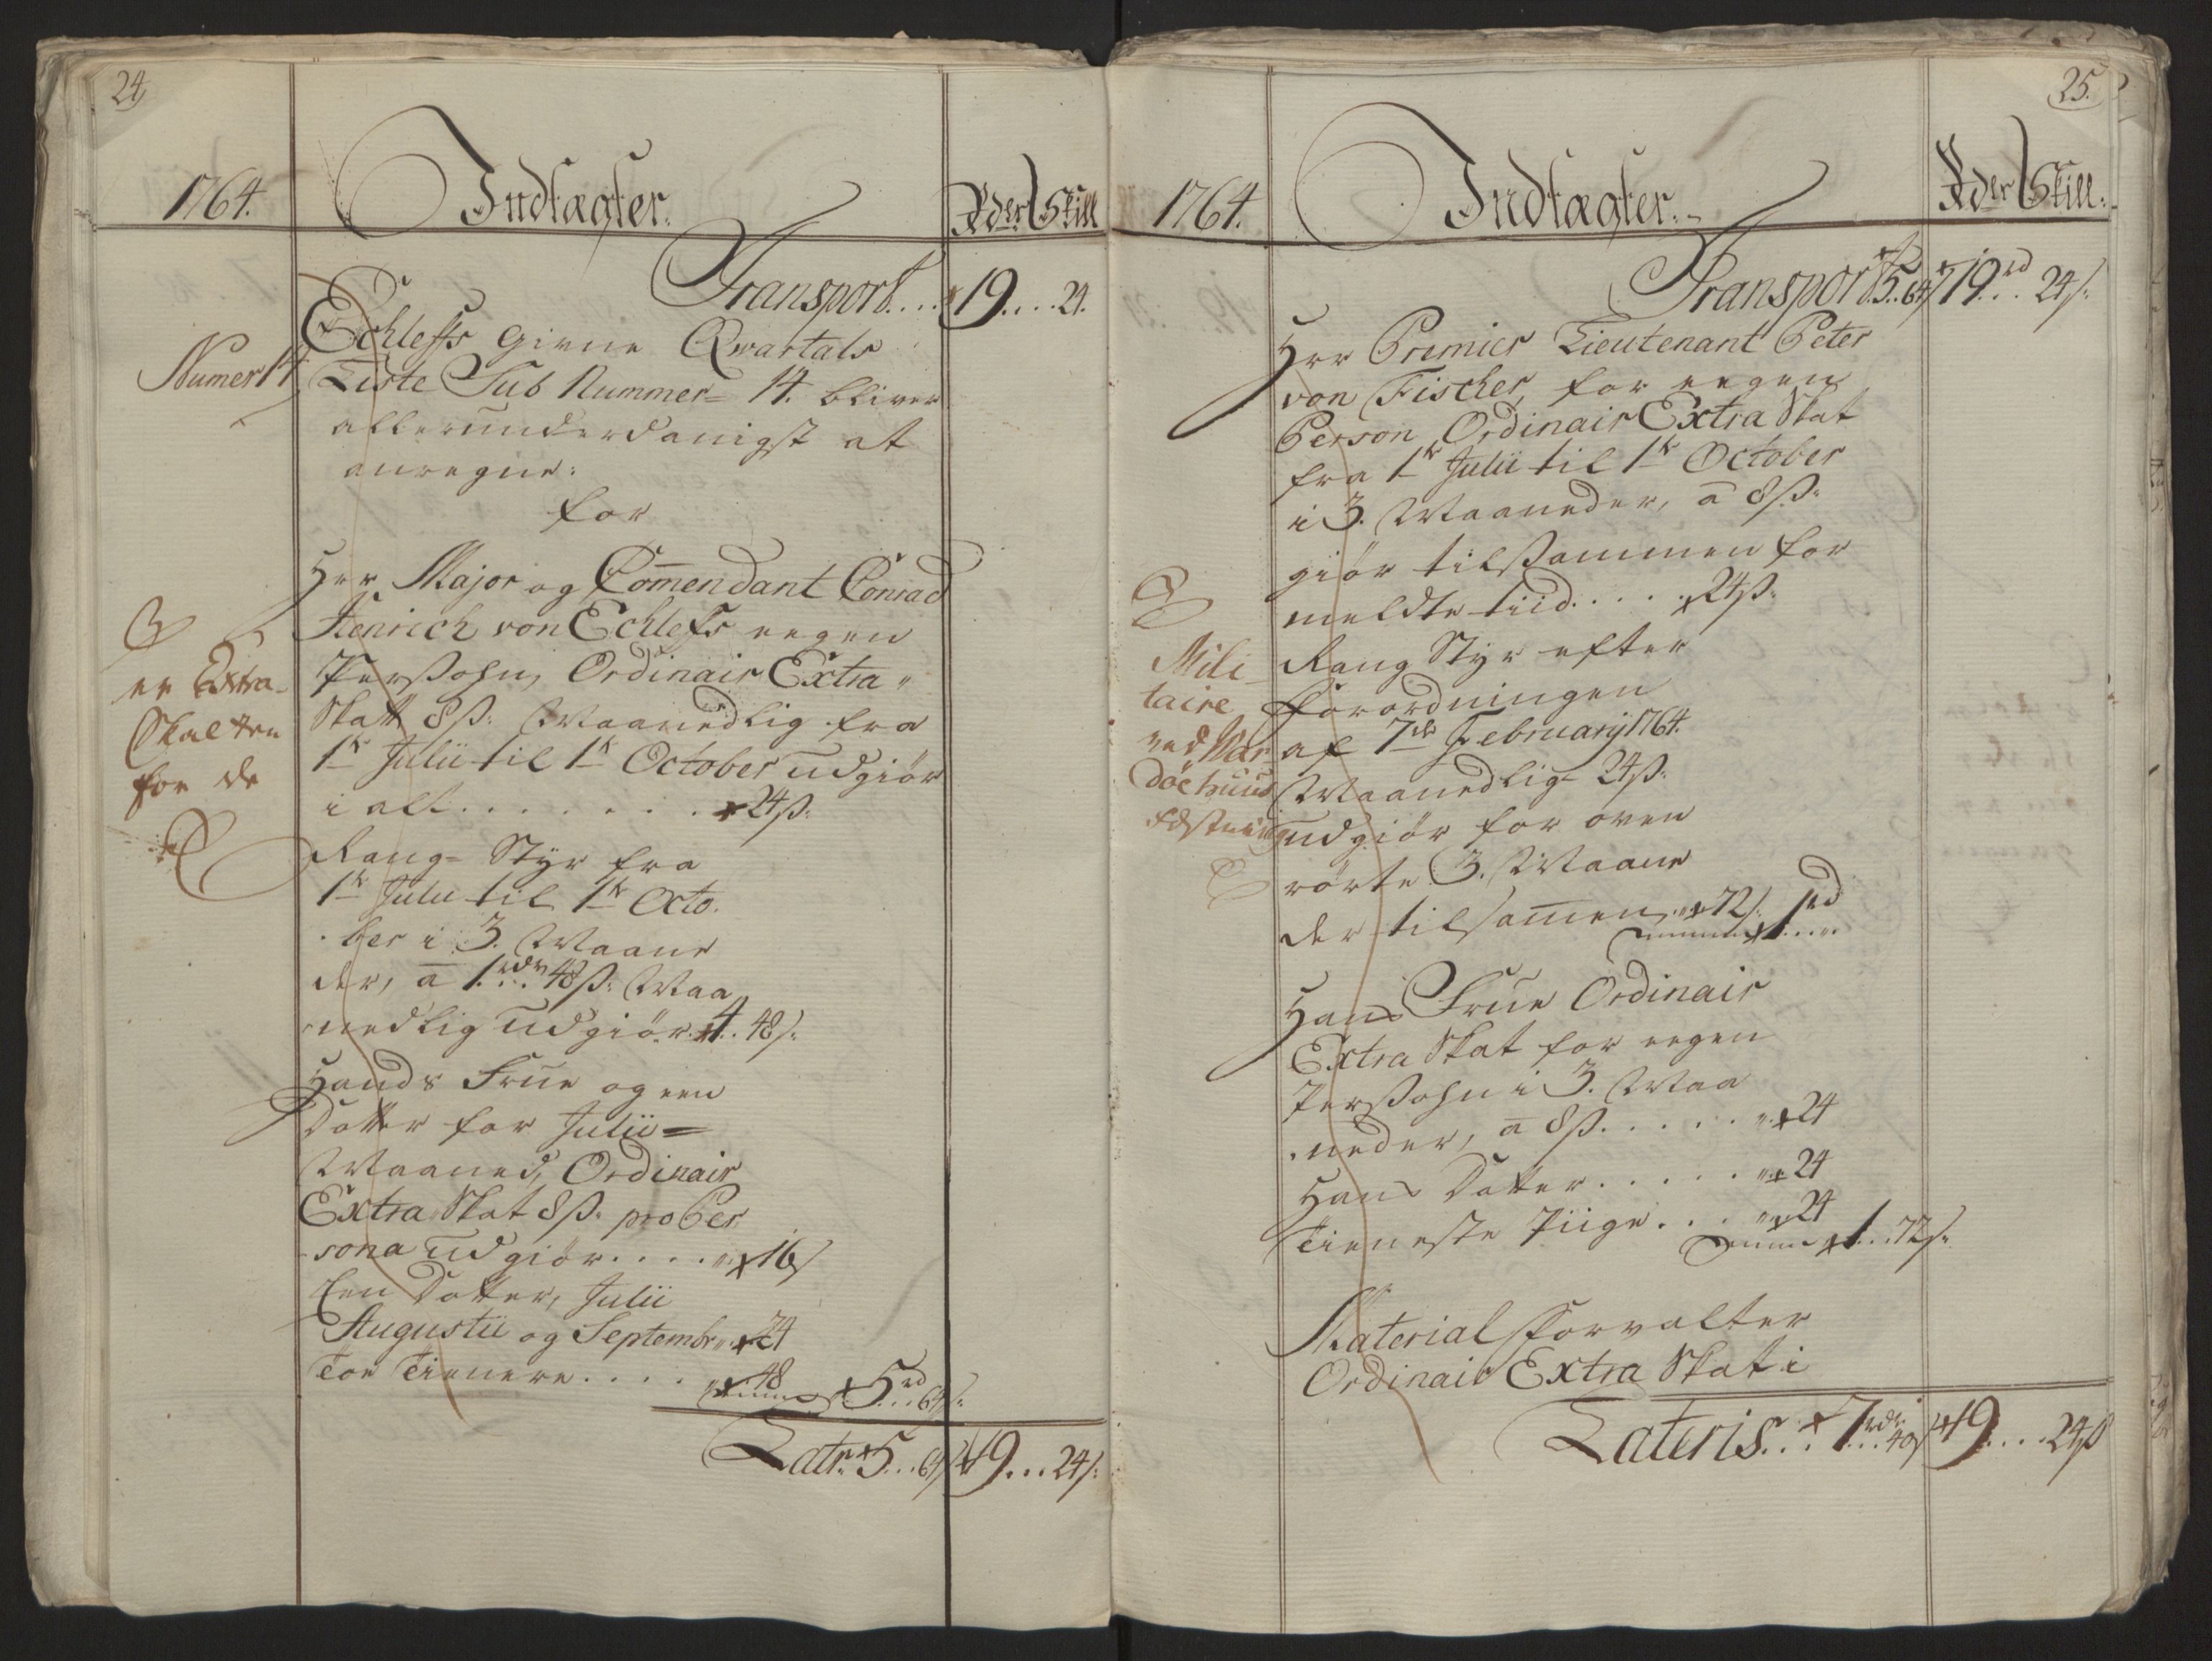 24
1764.
Indtægter.
Rdlr Skill
Transport.... 19...24.
Echleffs givne Qvartals
Numer 14
Liste Sub Nummer= 14. bliver
allerunderdanigst at
anregne:
for
Her Major og Com̄endant Conrad
Henrich von Echleffs eegen
Perßohn, Ordinair Extra
Skatt 8ß: Maanedlig fra
1te Julii til 1te October udgiør
i alt........24ß.
er Extra
Skatten
for de
Rang= Styr fra
1te Julii til 1te Octo.
ber i 3. Maane
der, a 1rdr 48ß: Maa
nedlig udgiør. 4..48ß.
Hands Frue og een
Datter for Julii=
Maaned, Ordinair
Extra Skat 8ß. pro Per
sona udgiør.... 16ß
Een Datter, Julii
Augustii og Septembr. 24
Toe Tienere.... 48
5rd..64ß.
Latr. 5...64ß 19...24ß.
25.
1764.
Indtægter.
Rdlr Skill.
Transport 5..64ß 19rd..24ß.
Herr Premier Lieutenant Peter
von Fischer, for eegen
Person Ordinair Extra Skat
fra 1te Julii til 1te October
i 3. Maaneder, a 8ß.
giør tilßammen for
meldte tiid.....24ß.
Mili
taire
ved War
døehuus
Fæstning
Rang Styr efter
Forordningen
af 7de February 1764.
Maanedlig 24ß.
udgiør for oven
rørte 3. Maane
der tilsam̄en, 72ß. 1rd
Hans Frue Ordinair
Extra Skat for eegen
Perßohn i 3. Maa
neder, a 8ß......24
Hans Datter......24
Tieneste Piige...24
1..72ß.
Material Forvalter
Ordinair Extra Skat i
Lateris... 7rdr..40ß 19....24ß